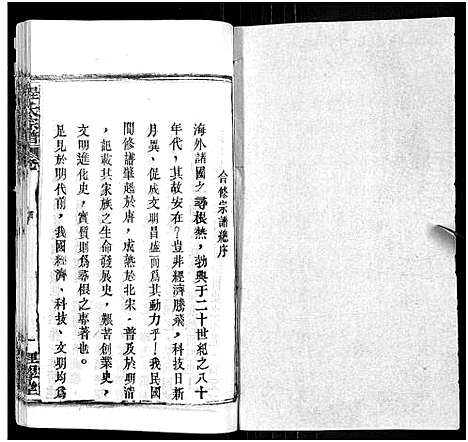 合修宗譜總序
海外諸國之尋根熱，勃興于二十世紀之八十
年代，其故安在？豈非經濟騰飛，科技日新
月異，促成文明昌盛而爲其動力乎！我民國
間修譜肇起於唐，成熟於北宋·普及於明清
，記載其家族之生命發展史，艱苦創業史，
文明進化史，實質則爲尋根之專著也。
足見於明代前，我國經濟、科技、文明均爲
氏宗譜